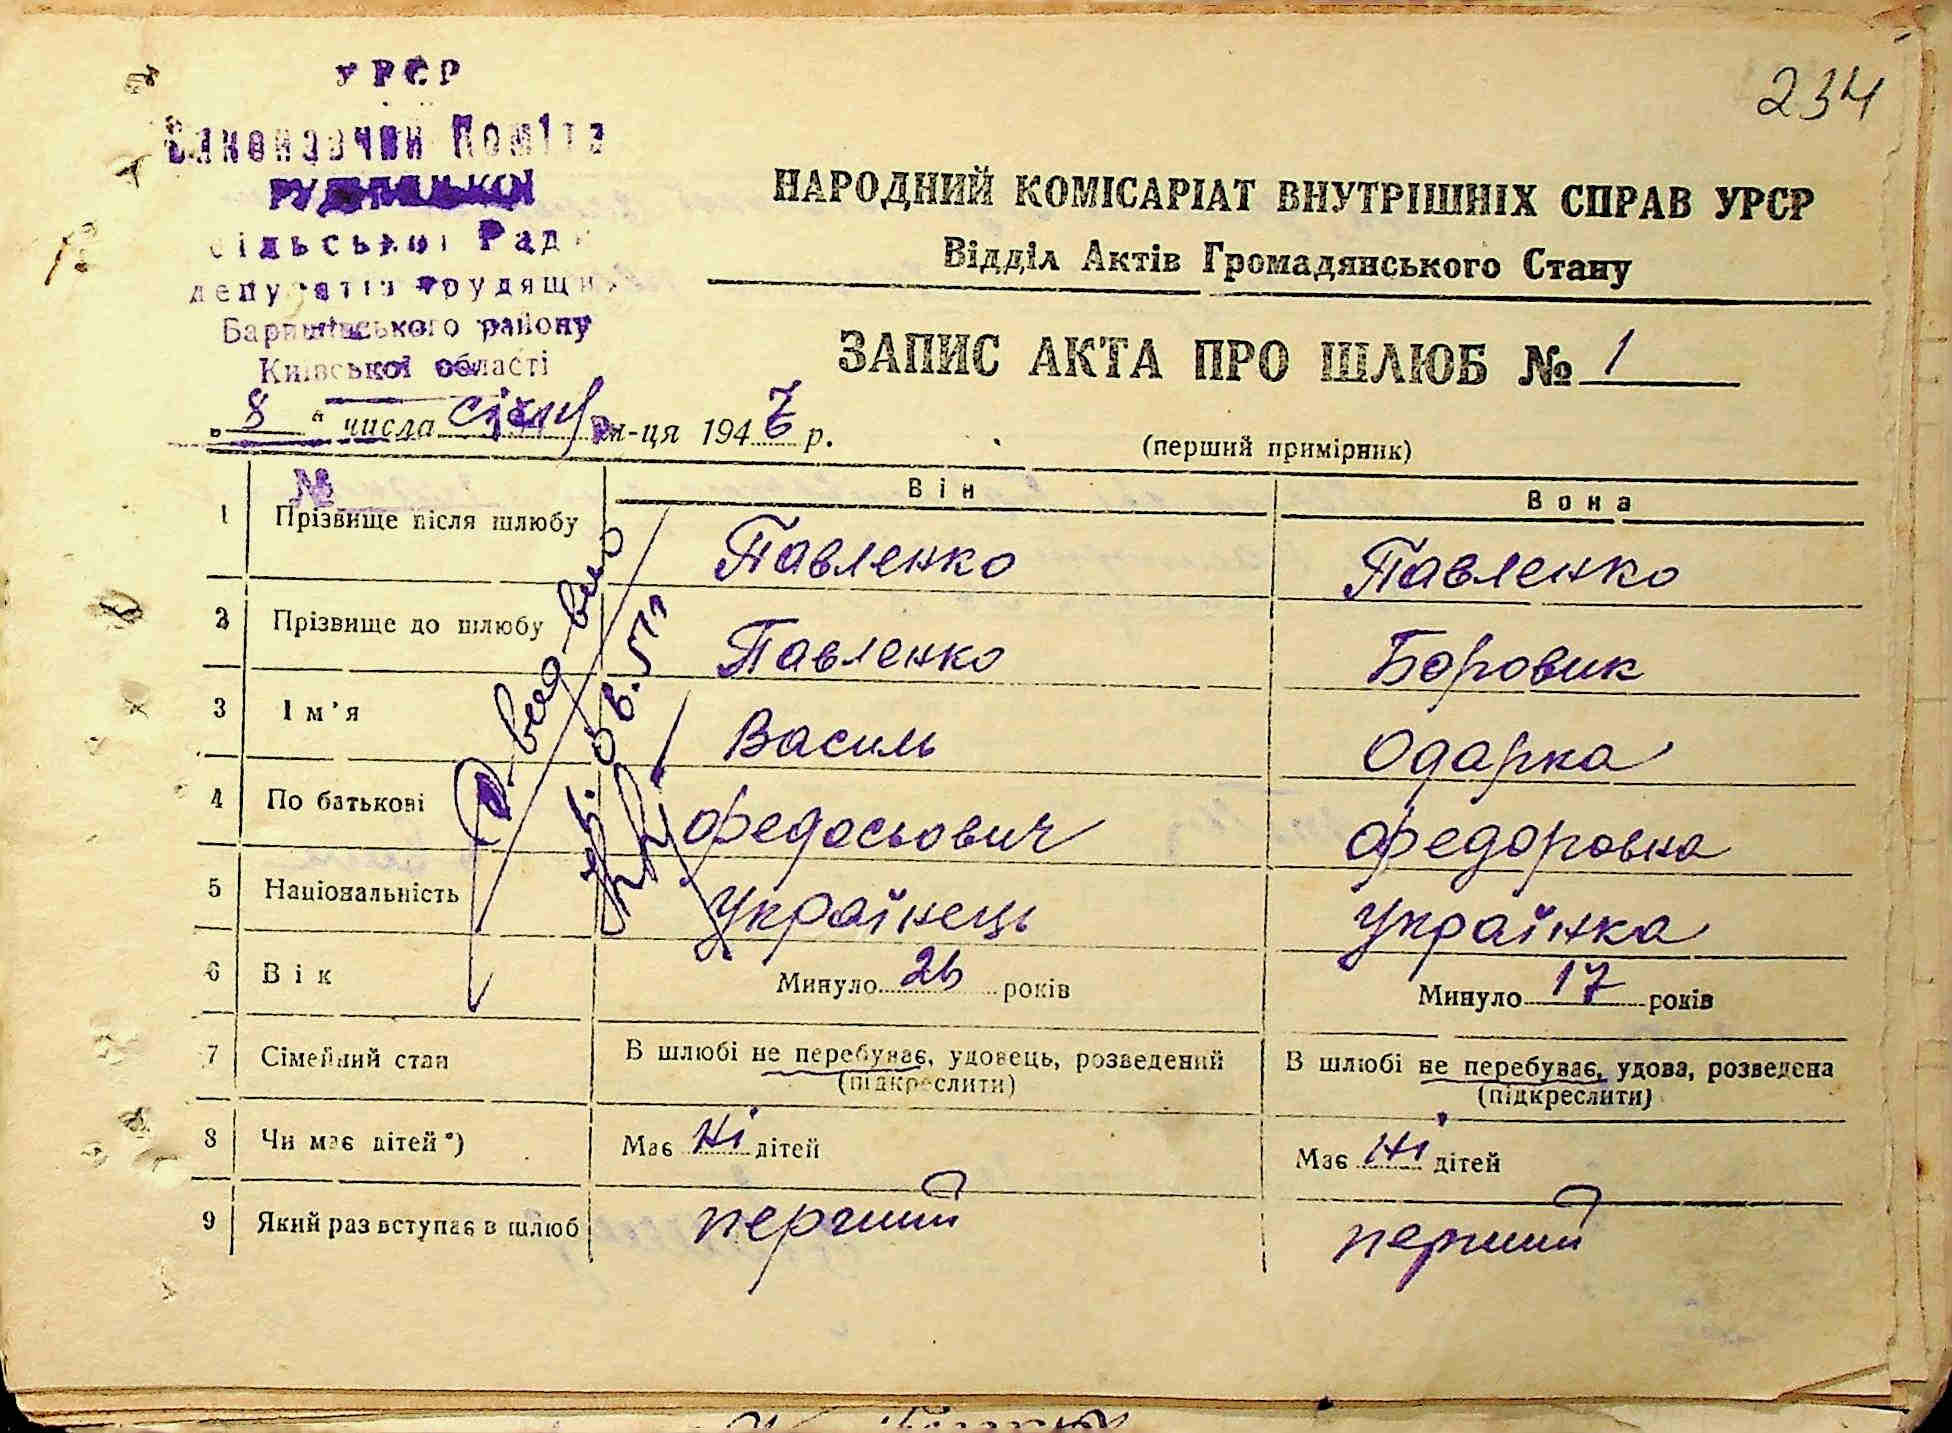 234
УРСР
Виконавчий Комітет
РУДНИЦЬКОЇ
сільської Ради
депутатів трудящих
Баришівського району
Київської області
НАРОДНИЙ КОМІСАРІАТ ВНУТРІШНІХ СПРАВ УРСР
Відділ Актів Громадянського Стану
ЗАПИС АКТА ПРО ШЛЮБ № 1
„ 8 " числа січня м-ця 194 р.
(перший примірник)
№
Він Вона
1 Прізвище після шлюбу Павленко Павленко
2 Прізвище до шлюбу Павленко Боровик
3 Ім'я Василь Одарка
4 По батькові Федосьович Федоровна
5 Національність Українець Українка
6 Вік Минуло 26 років Минуло 17 років
7 Сімейний стан В шлюбі не перебуває, удовець, розведений В шлюбі не перебуває, удова, розведена
(підкреслити) (підкреслити)
8 Чи має дітей*) Має ні дітей Має ні дітей
9 Який раз вступає в шлюб перший перший